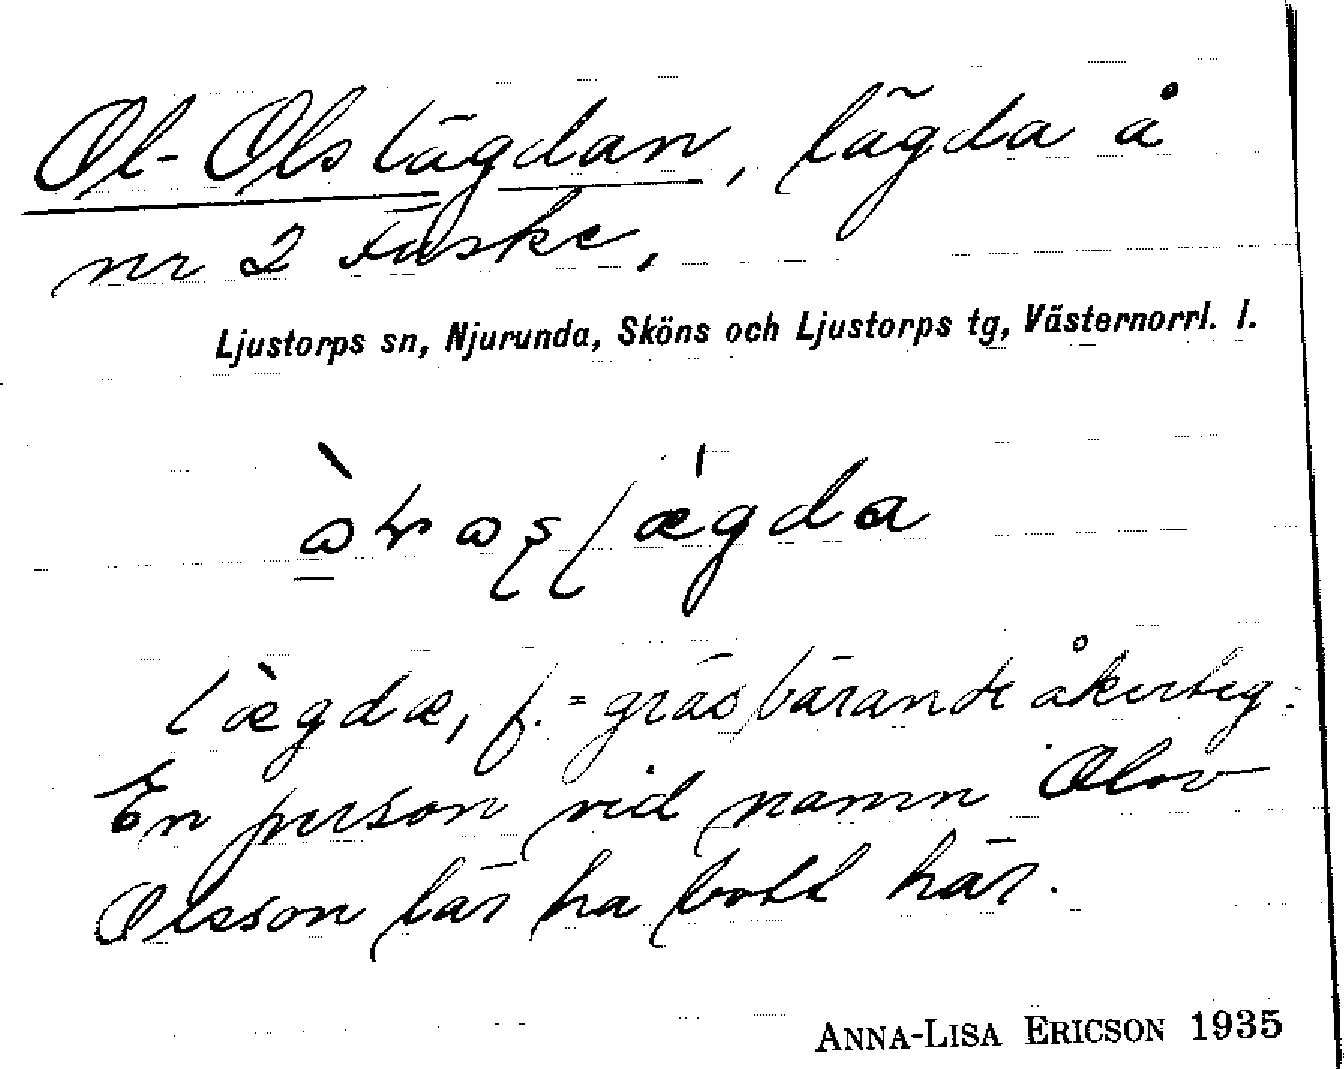 Ol-Olslägdan, lägda å
nr 2 Fuske,
Ljustorps sn, Njurunda, Sköns och Ljustorps tg, Västernorrl. l.
lægda, f. = gräsbärande åkerteg.
En person vid namn Olov
Olsson lär ha bott här.
ANNA-LISA ERICSON 1935